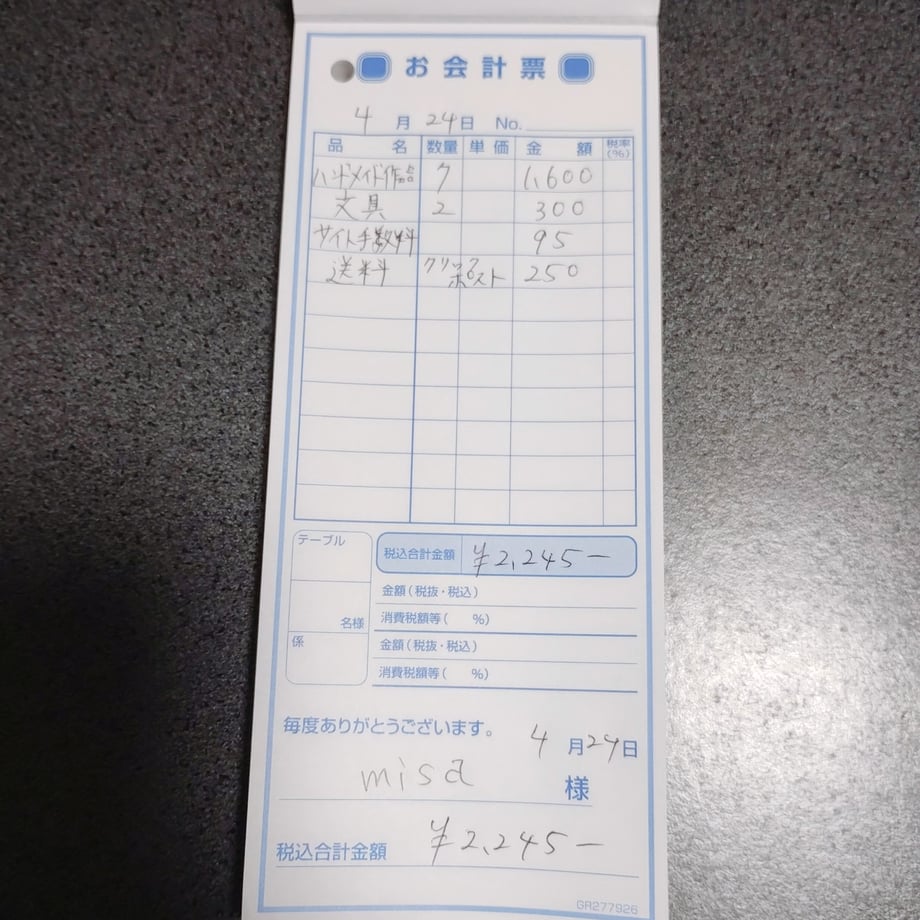 お会計票
4月24日 No.
品名 数量 単価 金額 税率(%)
ハンドメイド作品 7 1,600
文具 2 300
サイト手数料 95
送料 クリックポスト 250
テーブル
税込合計金額 ¥2,245ー
金額(税抜・税込)
消費税額等( %)
名様
係
金額(税抜・税込)
消費税額等( %)
毎度ありがとうございます。
4月24日
misa 様
税込合計金額 ¥2,245ー
GR277926